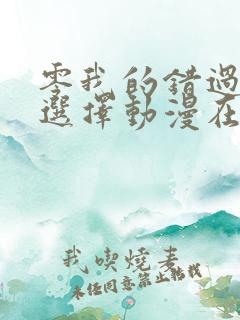 零我的錯過
選擇動漫在
我喫燒麦
未经同意禁止转载